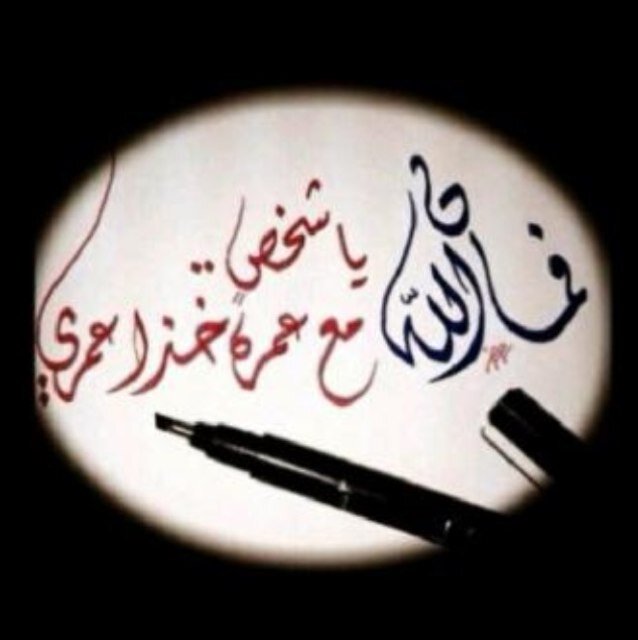 فمان الله
يا شخص ..
مع عمره خذا عمري